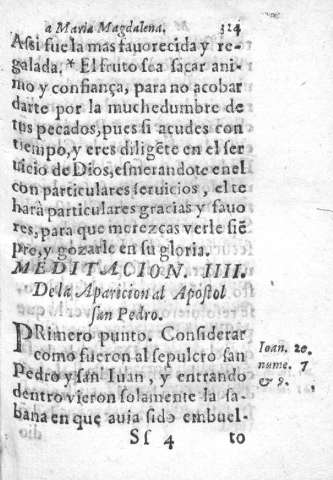 a Maria Magdalena. 324
Assi fue la mas fauorecida y re-
galada. * El fruto sea sacar ani-
mo y confiança, para no acobar
darte por la muchedumbre de
tus pecados, pues si acudes con
tiempo, y eres diligẽte en el ser
uicio de Dios, esmerandote en el
con particulares seruicios, el te
harà particulares gracias y fauo
res, para que merezcas verle siẽ
pre, y gozarle en su gloria.
MEDITACION. IIII.
De la Aparicion al Apostol
san Pedro.
PRimero punto. Considerar
como fueron al sepulcro san
Pedro y san Iuan, y entrando
dentro vieron solamente la sa-
bana en que auia sido embuel-
Ioan. 20.
nume. 7
& 9.
Ss 4 to